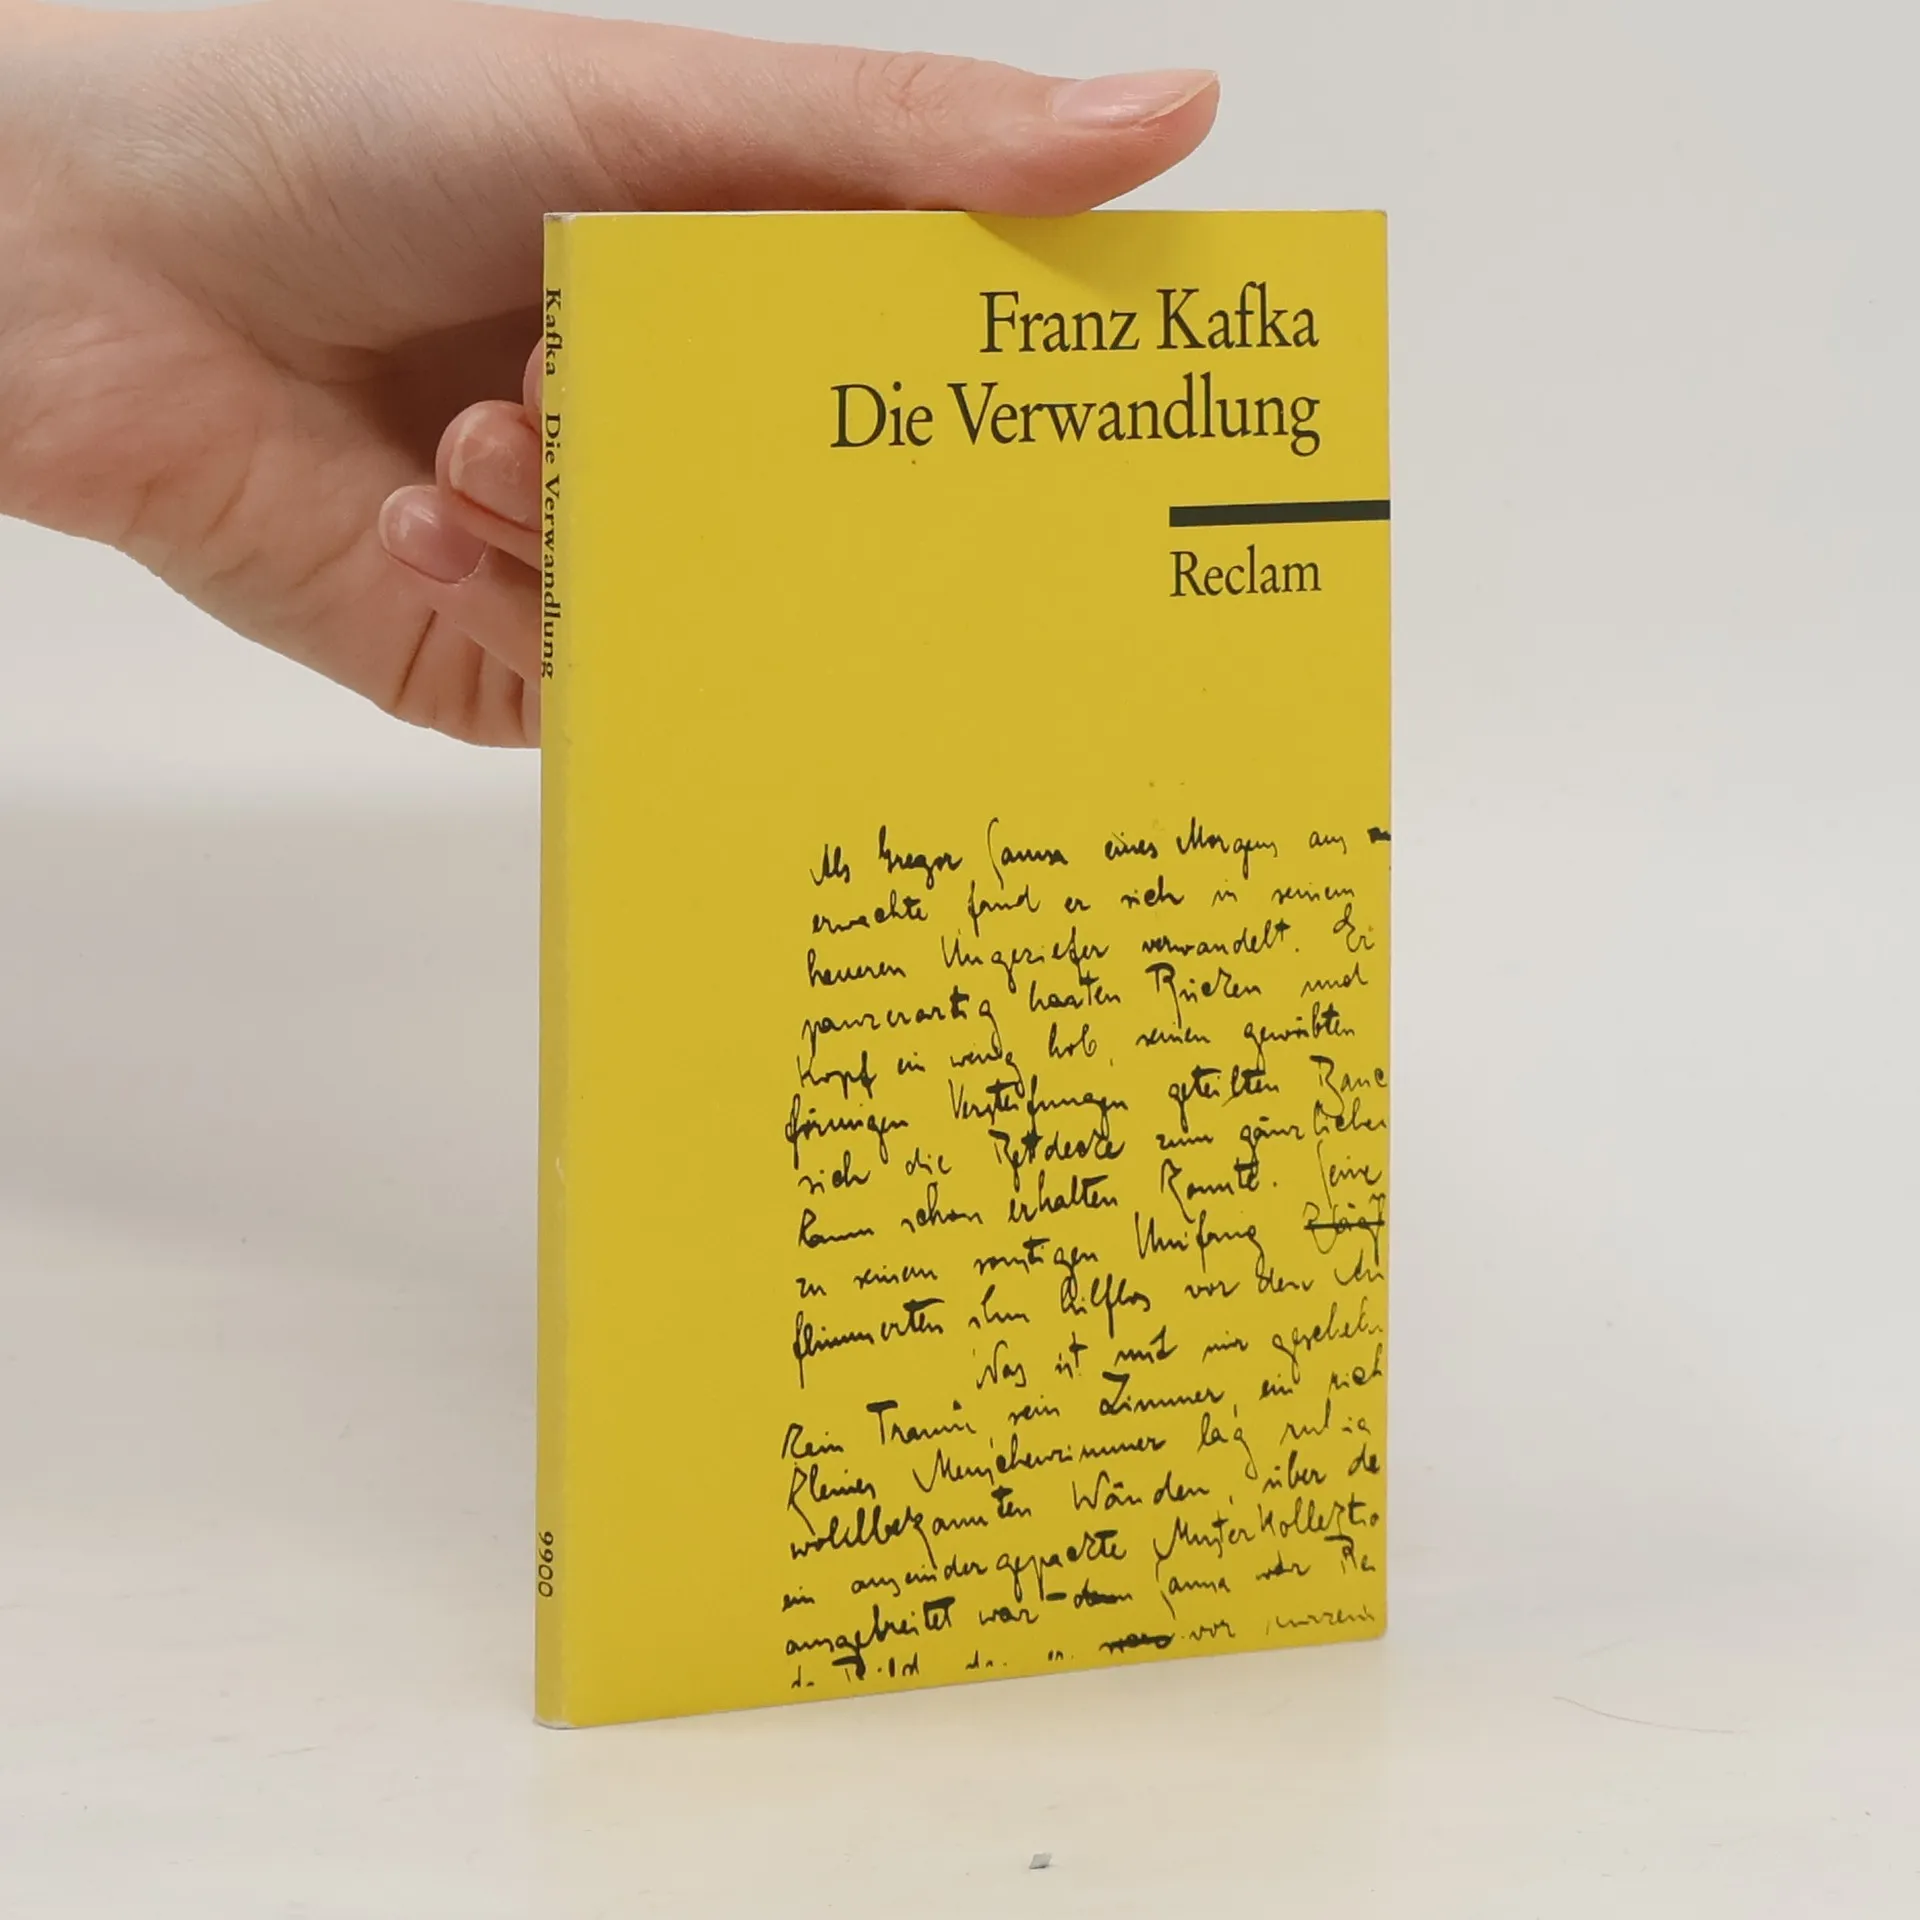 Franz Kafka
Die Verwandlung
Reclam
Kafka Die Verwandlung
9900
Als Gregor Samsa eines Morgens aus
erwachte fand er sich in seinem
heueren Ungeziefer verwandelt. Er
panzerartig harten Rücken und
Kopf ein wenig hob, seinen gewölbten
förmigen Versteifungen geteilten Bauc
sich die Bettdecke zum gänzlichen
kaum schon erhalten konnte. Seine
zu seinem sonstigen Umfang kläg
flimmerten ihm hilflos vor den Au
Was ist mit mir gescheh
Kein Traum, sein Zimmer, ein rich
kleines Menschenzimmer lag ruhig
wohlbekannten Wänden, über de
ein auseinandergepackte Musterkollektio
ausgebreitet war – Samsa war Rei
vor kurzem